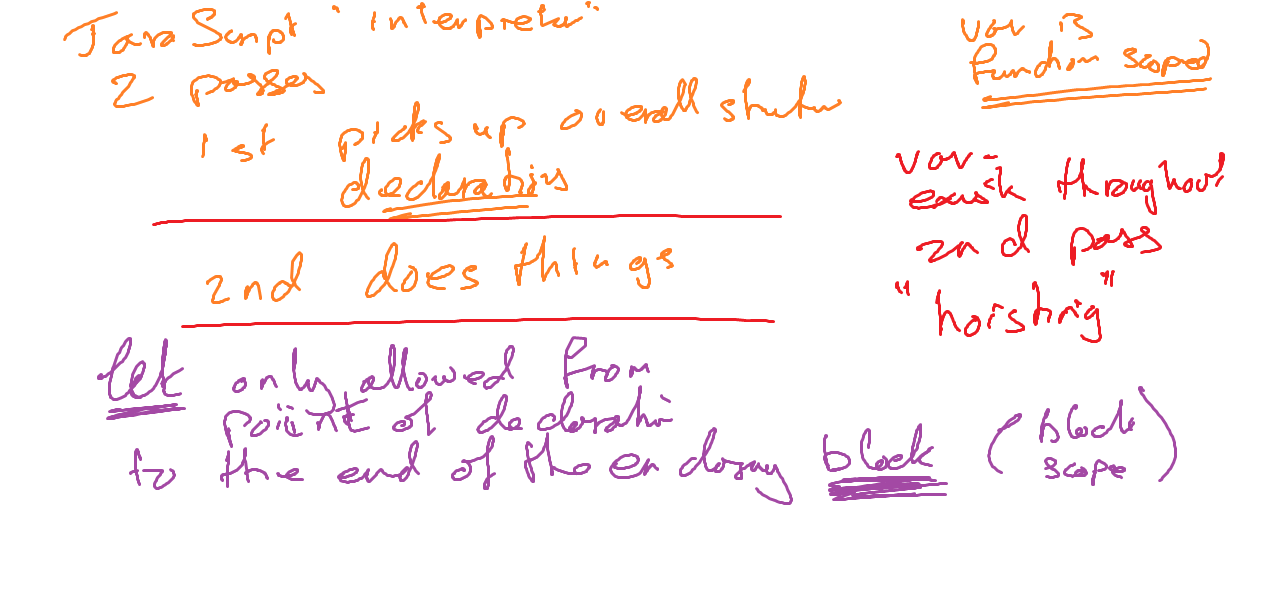 JavaScript "interpreter"
2 passes
1st picks up overall structure
declarations
2nd does things
let only allowed from
point of declaration
to the end of the enclosing block (block scope)
var is
function scoped
var -
exists throughout
2nd pass
"hoisting"